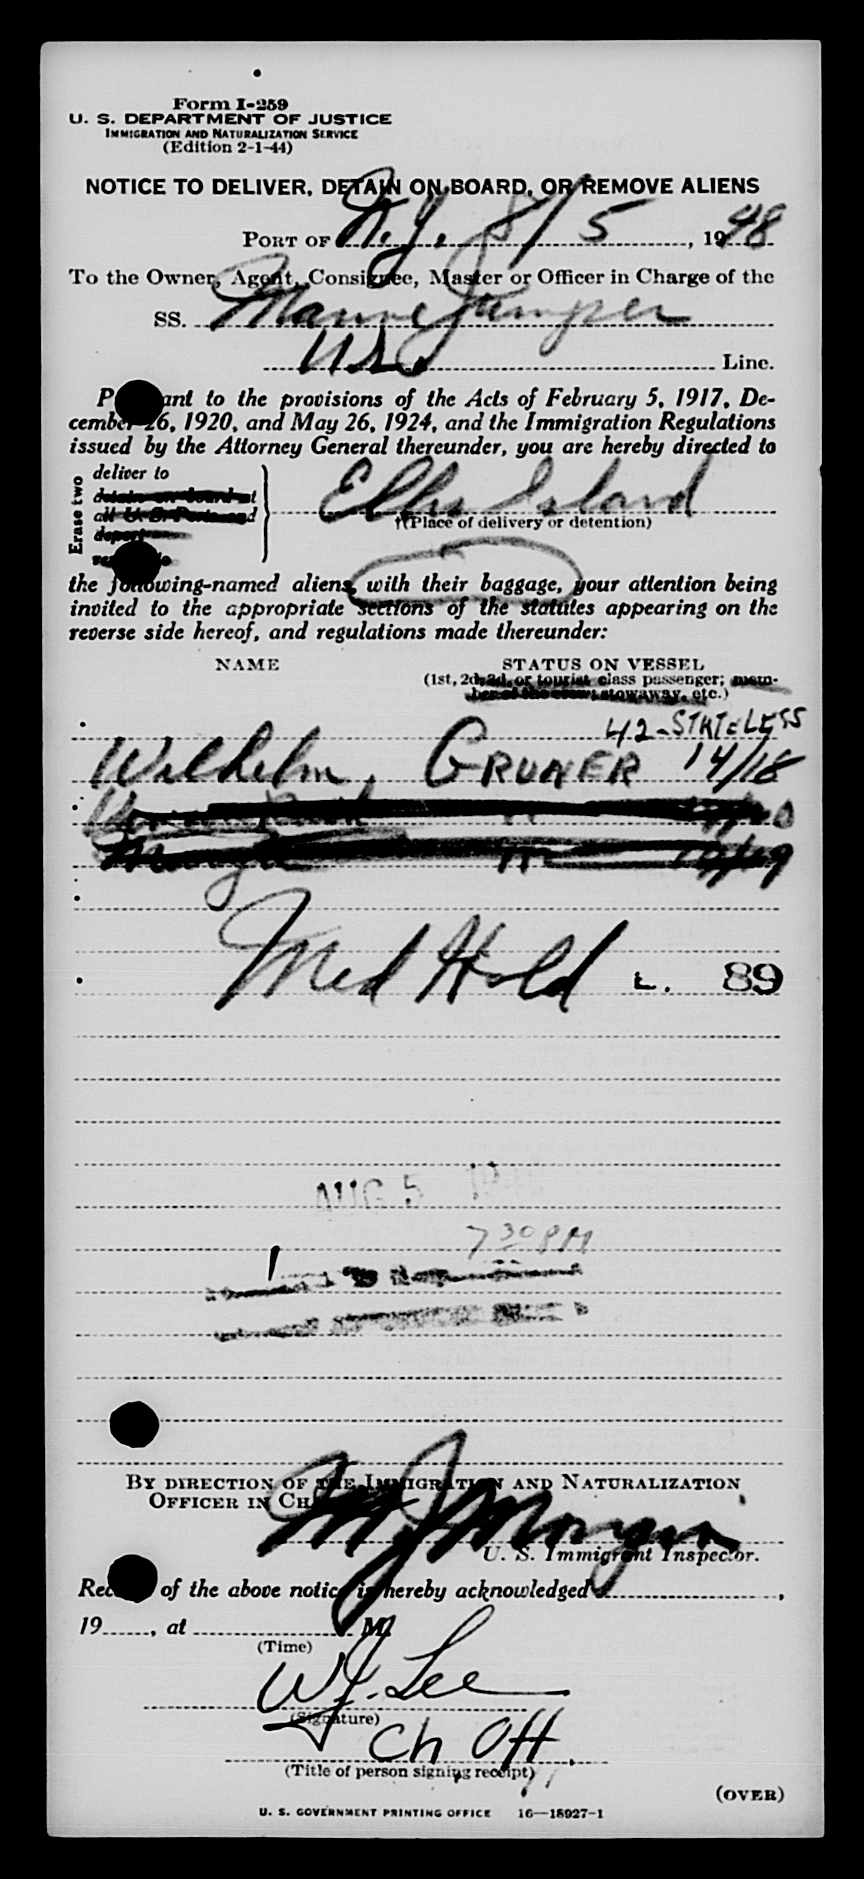 Form I-259
U. S. DEPARTMENT OF JUSTICE
IMMIGRATION AND NATURALIZATION SERVICE
(Edition 2-1-44)
NOTICE TO DELIVER, DETAIN ON BOARD, OR REMOVE ALIENS
PORT OF N.Y. 8/5, 1948
To the Owner, Agent, Consignee, Master or Officer in Charge of the
SS. Marine Jumper
Line.
P ant to the provisions of the Acts of February 5, 1917, De-
cember 26, 1920, and May 26, 1924, and the Immigration Regulations
issued by the Attorney General thereunder, you are hereby directed to
Erase two
deliver to
detain on board at
all U. S. Ports and
Ellis Island
†(Place of delivery or detention)
the following-named aliens, with their baggage, your attention being
invited to the appropriate sections of the statutes appearing on the
reverse side hereof, and regulations made thereunder:
NAME STATUS ON VESSEL
(1st, 2d, 3d, or tourist class passenger; mem-
ber of the crew, stowaway, etc.)
42-STATELESS
Wilhelm, GRUNER 14/18
Med Hold L. 89
AUG 5
7 30 PM
1
BY DIRECTION OF THE IMMIGRATION AND NATURALIZATION
OFFICER IN CH
M J Morgan
U. S. Immigrant Inspector.
Rec of the above notice is hereby acknowledged ,
19 , at M.
(Time)
W J. Lee
(Signature)
Ch Off.
(Title of person signing receipt)
(OVER)
U. S. GOVERNMENT PRINTING OFFICE 16—18927-1